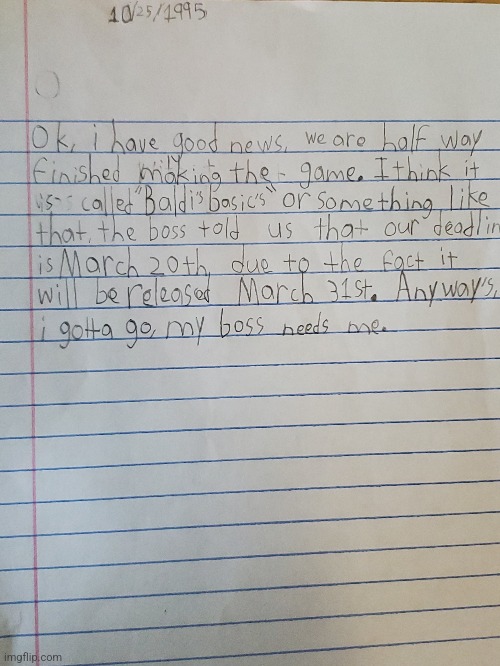 10/25/1995
Ok, i have good news, we are half way
finished making the game. I think it
is called "Baldi's basic's" or something like
that. the boss told us that our deadlin
is March 20th, due to the fact it
will be released March 31st. Anyway's,
i gotta go, my boss needs me.
imgflip.com